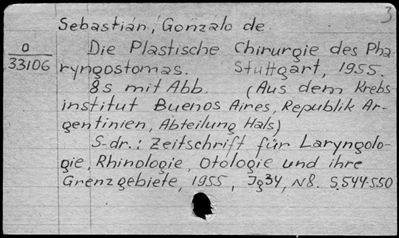 3
Sebastián, Gonzalo de
O
33106
Die Plastische Chirurgie des Pha-
ryngostomas. Stuttgart, 1955.
8s mit Abb. (Aus dem Krebs-
institut Buenos Aires, Republik Ar-
gentinien, Abteilung Hals)
S-dr.: Zeitschrift für Laryngolo-
gie, Rhinologie, Otologie und ihre
Grenzgebiete, 1955, Jg34, N8. S.544-550